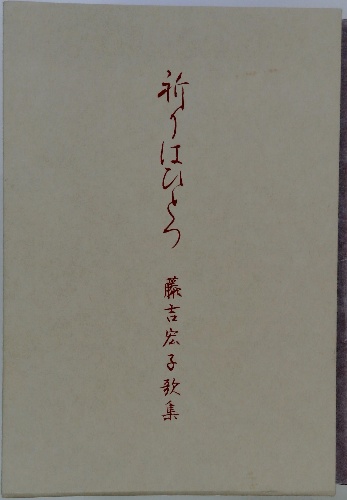 祈りはひとつ
藤吉宏子歌集